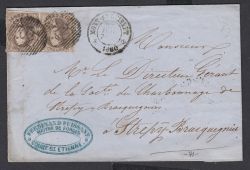 1860
Monsieur
M. Le Directeur Gérant
de la Société du Charbonnage de
Strépy-Bracquegnies
à Strepy Bracquegnies
FERDINAND PUISSANT
MAITRE DE FORGES
COURT ST ETIENNE